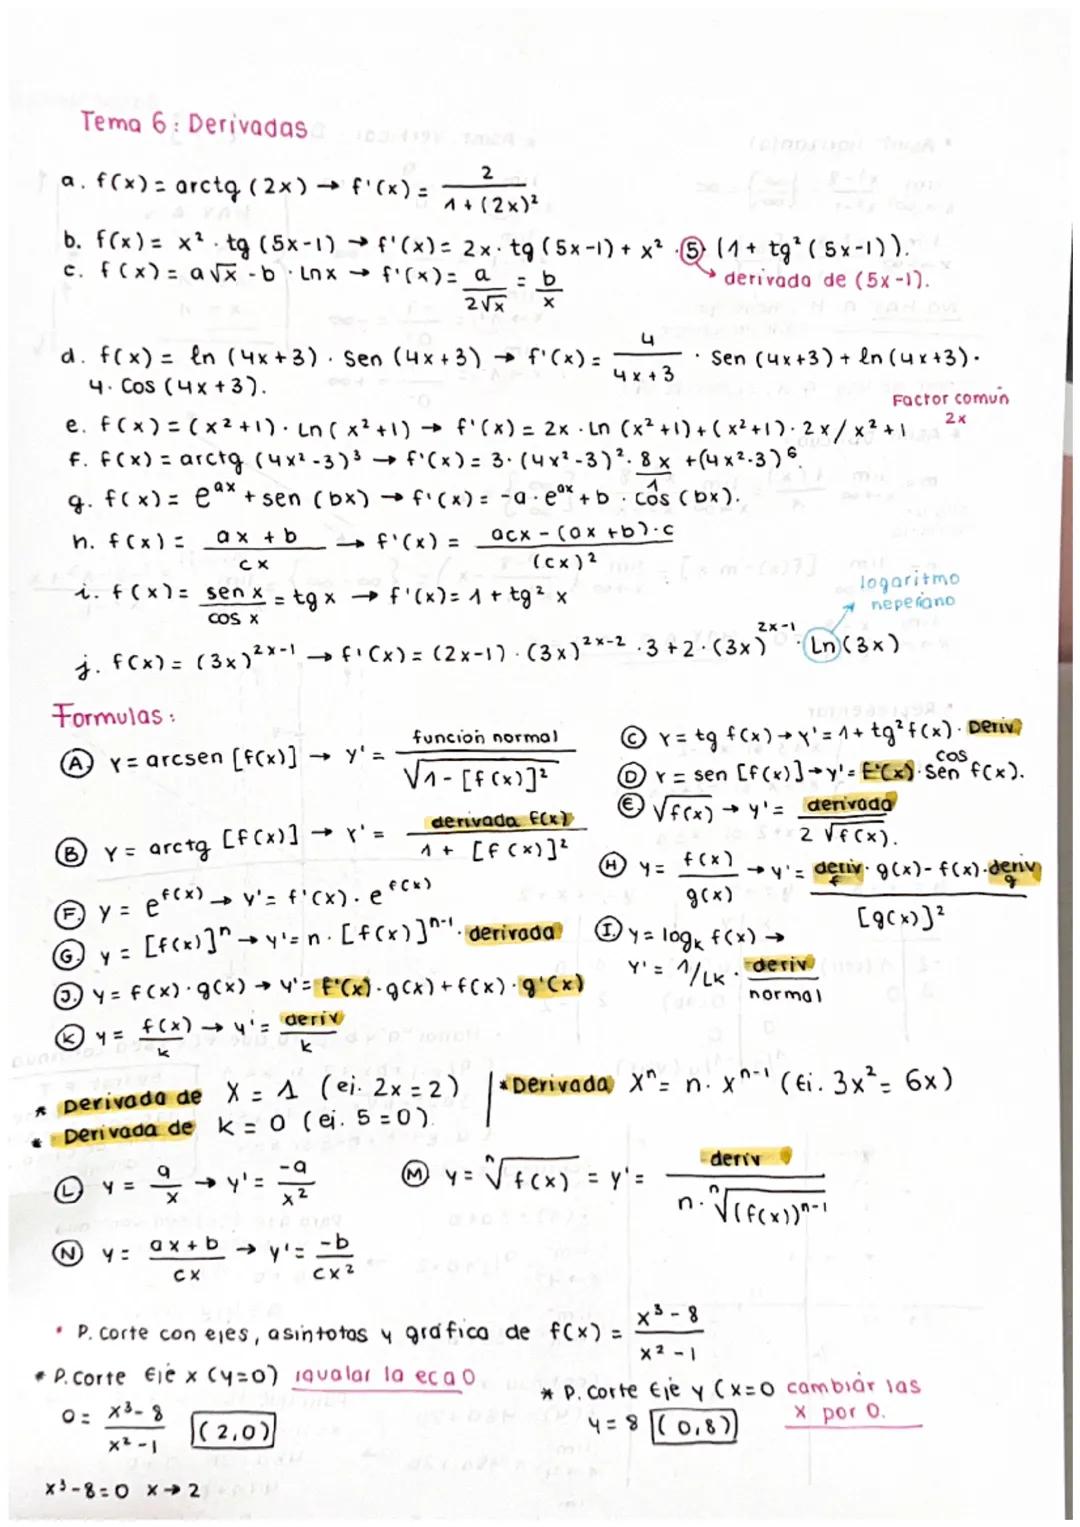 Tema 6: Derivadas
a. f(x) = arctg (2x) → f'(x) = 2 / 1 + (2x)²
b. f(x) = x² · tg (5x-1) → f'(x) = 2x · tg (5x-1) + x² · 5 · (1 + tg² (5x-1)).
derivada de (5x-1).
c. f(x) = a√x - b · Lnx → f'(x) = a / 2√x = b / x
d. f(x) = ln (4x+3) · Sen (4x+3) → f'(x) = 4 / 4x+3 · Sen (4x+3) + ln (4x+3) ·
4 · Cos (4x+3).
Factor común
2x
e. f(x) = (x²+1) · Ln (x²+1) → f'(x) = 2x · Ln (x²+1) + (x²+1) · 2x / x²+1
f. f(x) = arctg (4x²-3)³ → f'(x) = 3 · (4x²-3)² · 8x / 1 + (4x²-3)⁶
g. f(x) = eᵃˣ + sen (bx) → f'(x) = -a · eᵃˣ + b · cos (bx).
h. f(x) = ax + b / cx → f'(x) = acx - (ax + b) · c / (cx)²
logaritmo
neperiano
i. f(x) = sen x / cos x = tg x → f'(x) = 1 + tg² x
j. f(x) = (3x)²ˣ⁻¹ → f'(x) = (2x-1) · (3x)²ˣ⁻² · 3 + 2 · (3x)²ˣ⁻¹ · Ln (3x)
Formulas:
A Y = arcsen [f(x)] → y' = función normal / √1 - [f(x)]²
B Y = arctg [f(x)] → Y' = derivada f(x) / 1 + [f(x)]²
F. y = e^f(x) → y' = f'(x) · e^f(x)
G. y = [f(x)]ⁿ → y' = n · [f(x)]ⁿ⁻¹ · derivada
J. y = f(x) · g(x) → y' = f'(x) · g(x) + f(x) · g'(x)
K y = f(x) / k → y' = deriv / k
C Y = tg f(x) → y' = 1 + tg² f(x) · Deriv
D Y = sen [f(x)] → y' = f'(x) · sen cos f(x).
E. √f(x) → y' = derivada / 2 √f(x).
H y = f(x) / g(x) → y' = deriv f · g(x) - f(x) · deriv g / [g(x)]²
I y = logₖ f(x) →
Y' = 1/Lk · deriv / normal
* Derivada de X = 1 (ej. 2x = 2)
* Derivada de k = 0 (ej. 5 = 0).
* Derivada Xⁿ = n · xⁿ⁻¹ (Ej. 3x² = 6x)
L y = a / x → y' = -a / x²
M y = ⁿ√f(x) = y' = deriv / n · ⁿ√(f(x))ⁿ⁻¹
N y = ax + b / cx → y' = -b / cx²
• P. Corte con ejes, asintotas y gráfica de f(x) = x³ - 8 / x² - 1
* P. Corte Eje x (y=0) igualar la ec a 0
0 = x³ - 8 / x² - 1 (2,0)
x³ - 8 = 0 x → 2
* P. Corte Eje y (x=0 cambiar las
x por 0.
y = 8 (0,8)